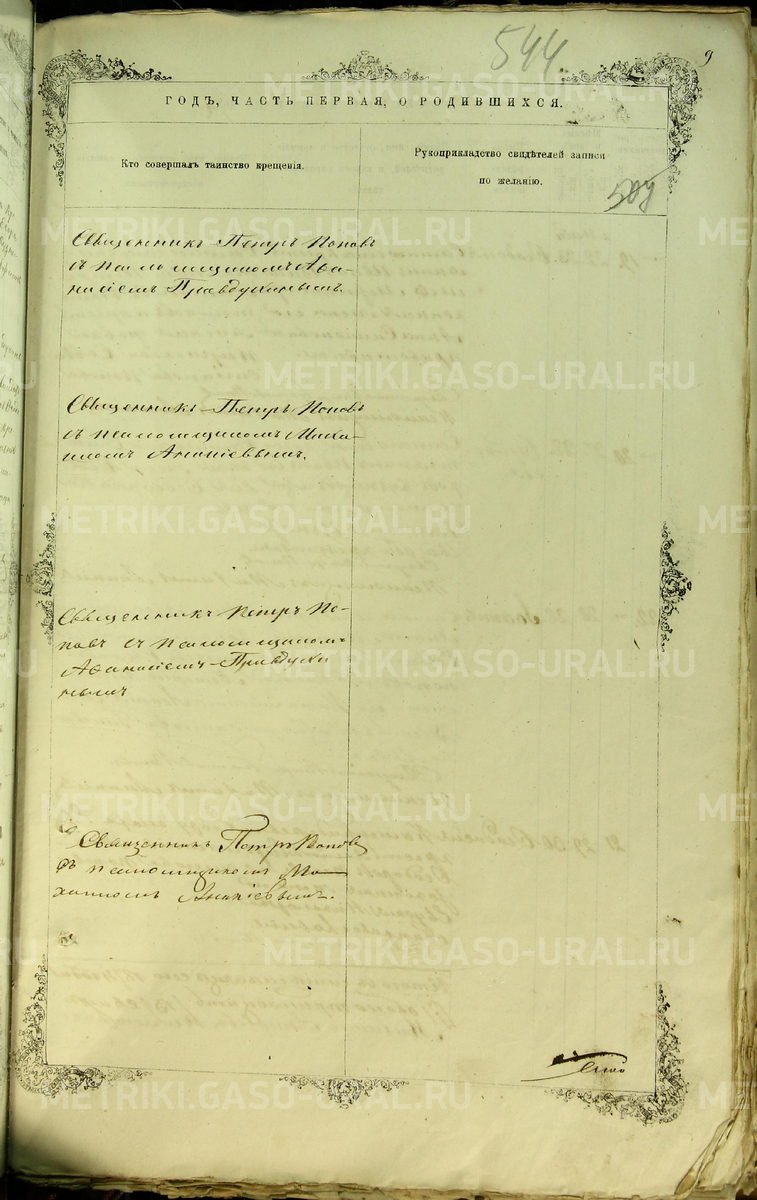 544
9
ГОДЪ, ЧАСТЬ ПЕРВАЯ, О РОДИВШИХСЯ.
Кто совершалъ таинство крещенія.
Рукоприкладство свидѣтелей записи
по желанію.
Священникъ Петръ Поповъ
съ псаломщикомъ Афа-
насіемъ Правдухинымъ.
Священникъ Петръ Поповъ
съ псаломщикомъ Миха-
иломъ Ананіевымъ.
Священникъ Петръ По-
повъ съ псаломщикомъ
Афанасіемъ Правдухи
нымъ
Священникъ Петръ Поповъ
съ псаломщикомъ Ми-
хаиломъ Ананіевымъ.
METRIKI.GASO-URAL.RU